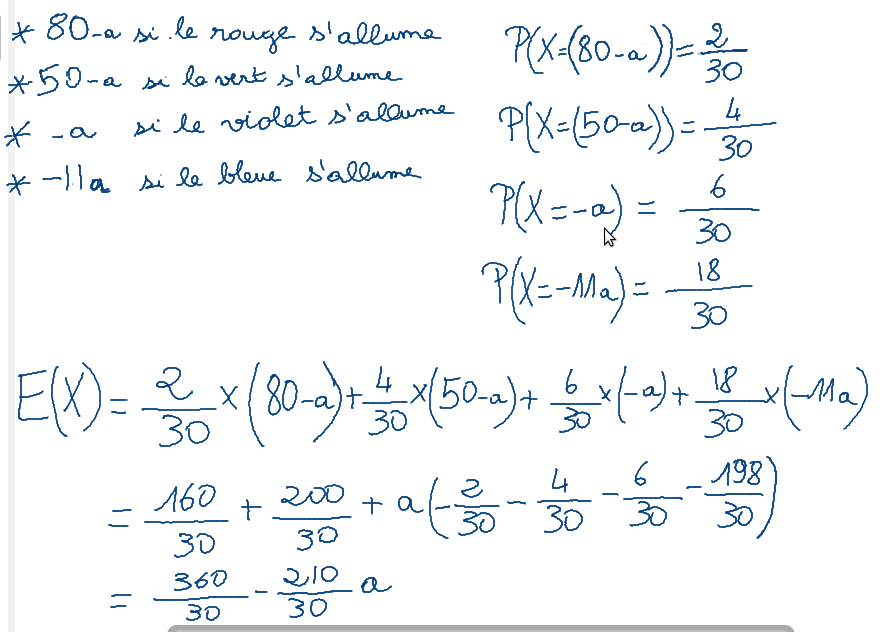 * 80-a si le rouge s'allume
* 50-a si le vert s'allume
* -a si le violet s'allume
* -11a si le bleue s'allume
P(X=(80-a))=2/30
P(X=(50-a))=4/30
P(X=-a) = 6/30
P(X=-11a)= 18/30
E(X)= 2/30 ×(80-a)+4/30×(50-a)+ 6/30×(-a)+ 18/30×(-11a)
= 160/30 + 200/30 + a(-2/30 - 4/30 - 6/30 - 198/30)
= 360/30 - 210/30 a